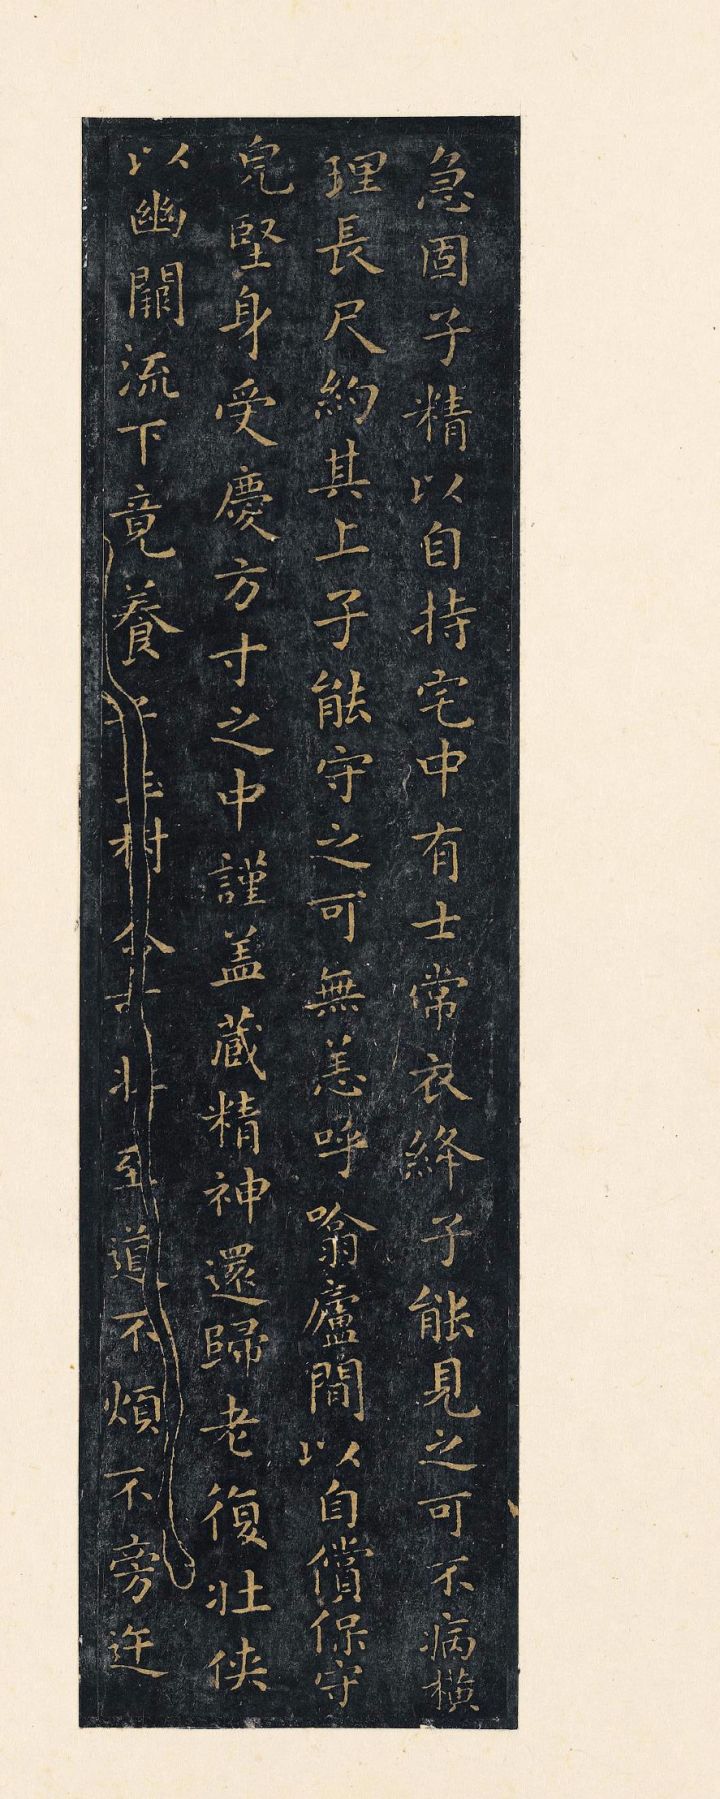 急固子精以自持宅中有士常衣絳子能見之可不病橫
理長尺約其上子能守之可無恙呼噏廬間以自償保守
完堅身受慶方寸之中謹盖藏精神還歸老復壯俠
以幽闕流下竟養 樹 至道不煩不旁迕